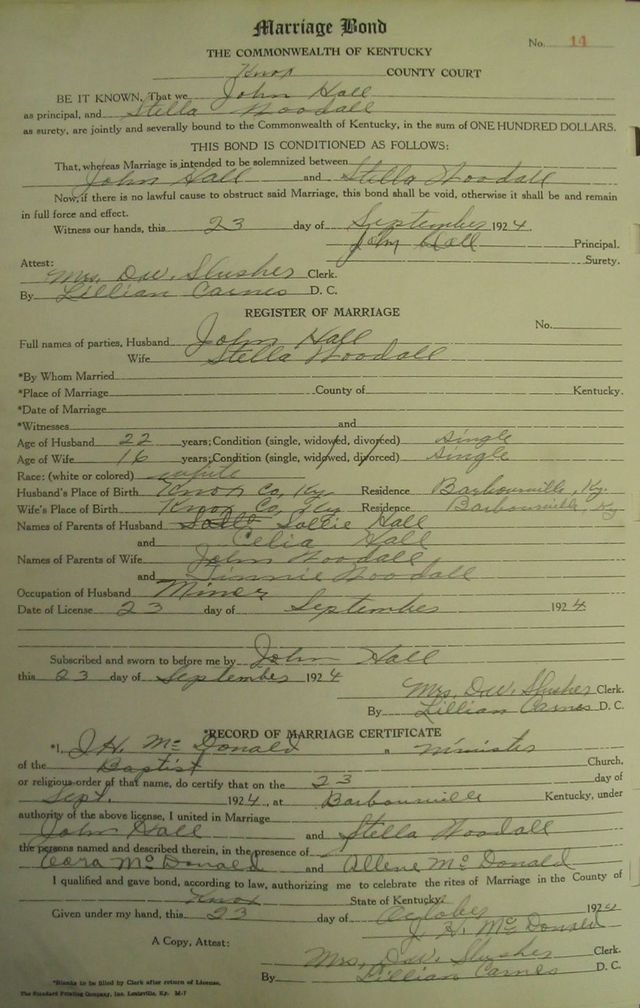 Marriage Bond
No. 14
THE COMMONWEALTH OF KENTUCKY
Knox COUNTY COURT
BE IT KNOWN, That we John Hall
as principal, and Stella Woodall
as surety, are jointly and severally bound to the Commonwealth of Kentucky, in the sum of ONE HUNDRED DOLLARS.
THIS BOND IS CONDITIONED AS FOLLOWS:
That, whereas Marriage is intended to be solemnized between
John Hall and Stella Woodall
Now, if there is no lawful cause to obstruct said Marriage, this bond shall be void, otherwise it shall be and remain
in full force and effect.
Witness our hands, this 23 day of September 1924
John Hall Principal.
Surety.
Attest:
Mrs. D.W. Slusher Clerk.
By Lillian Carnes D. C.
REGISTER OF MARRIAGE
No.
Full names of parties, Husband John Hall
Wife Stella Woodall
*By Whom Married
*Place of Marriage County of Kentucky.
*Date of Marriage
*Witnesses and
Age of Husband 22 years; Condition (single, widowed, divorced) single
Age of Wife 16 years; Condition (single, widowed, divorced) single
Race: (white or colored) white
Husband's Place of Birth Knox Co, Ky. Residence Barbourville, Ky.
Wife's Place of Birth Knox Co, Ky Residence Barbourville, Ky
Names of Parents of Husband Sollie Hall
and Celia Hall
Names of Parents of Wife John Woodall
and Woodall
Occupation of Husband Miner
Date of License 23 day of September 1924
Subscribed and sworn to before me by John Hall
this 23 day of September 1924
Mrs. D.W. Slusher Clerk.
By Lillian Carnes D. C.
*RECORD OF MARRIAGE CERTIFICATE
*I, J.H. McDonald a minister
of the Baptist Church.
or religious order of that name, do certify that on the 23 day of
Sept. 1924, at Barbourville Kentucky, under
authority of the above license, I united in Marriage
John Hall and Stella Woodall
the persons named and described therein, in the presence of
Cora McDonald and Allene McDonald
I qualified and gave bond, according to law, authorizing me to celebrate the rites of Marriage in the County of
Knox State of Kentucky.
Given under my hand, this 23 day of October 1924
J. H. McDonald
A Copy, Attest:
Mrs. D.W. Slusher Clerk.
By Lillian Carnes D. C.
*Blanks to be filled by Clerk after return of License.
The Standard Printing Company, Inc. Louisville, Ky. M-7